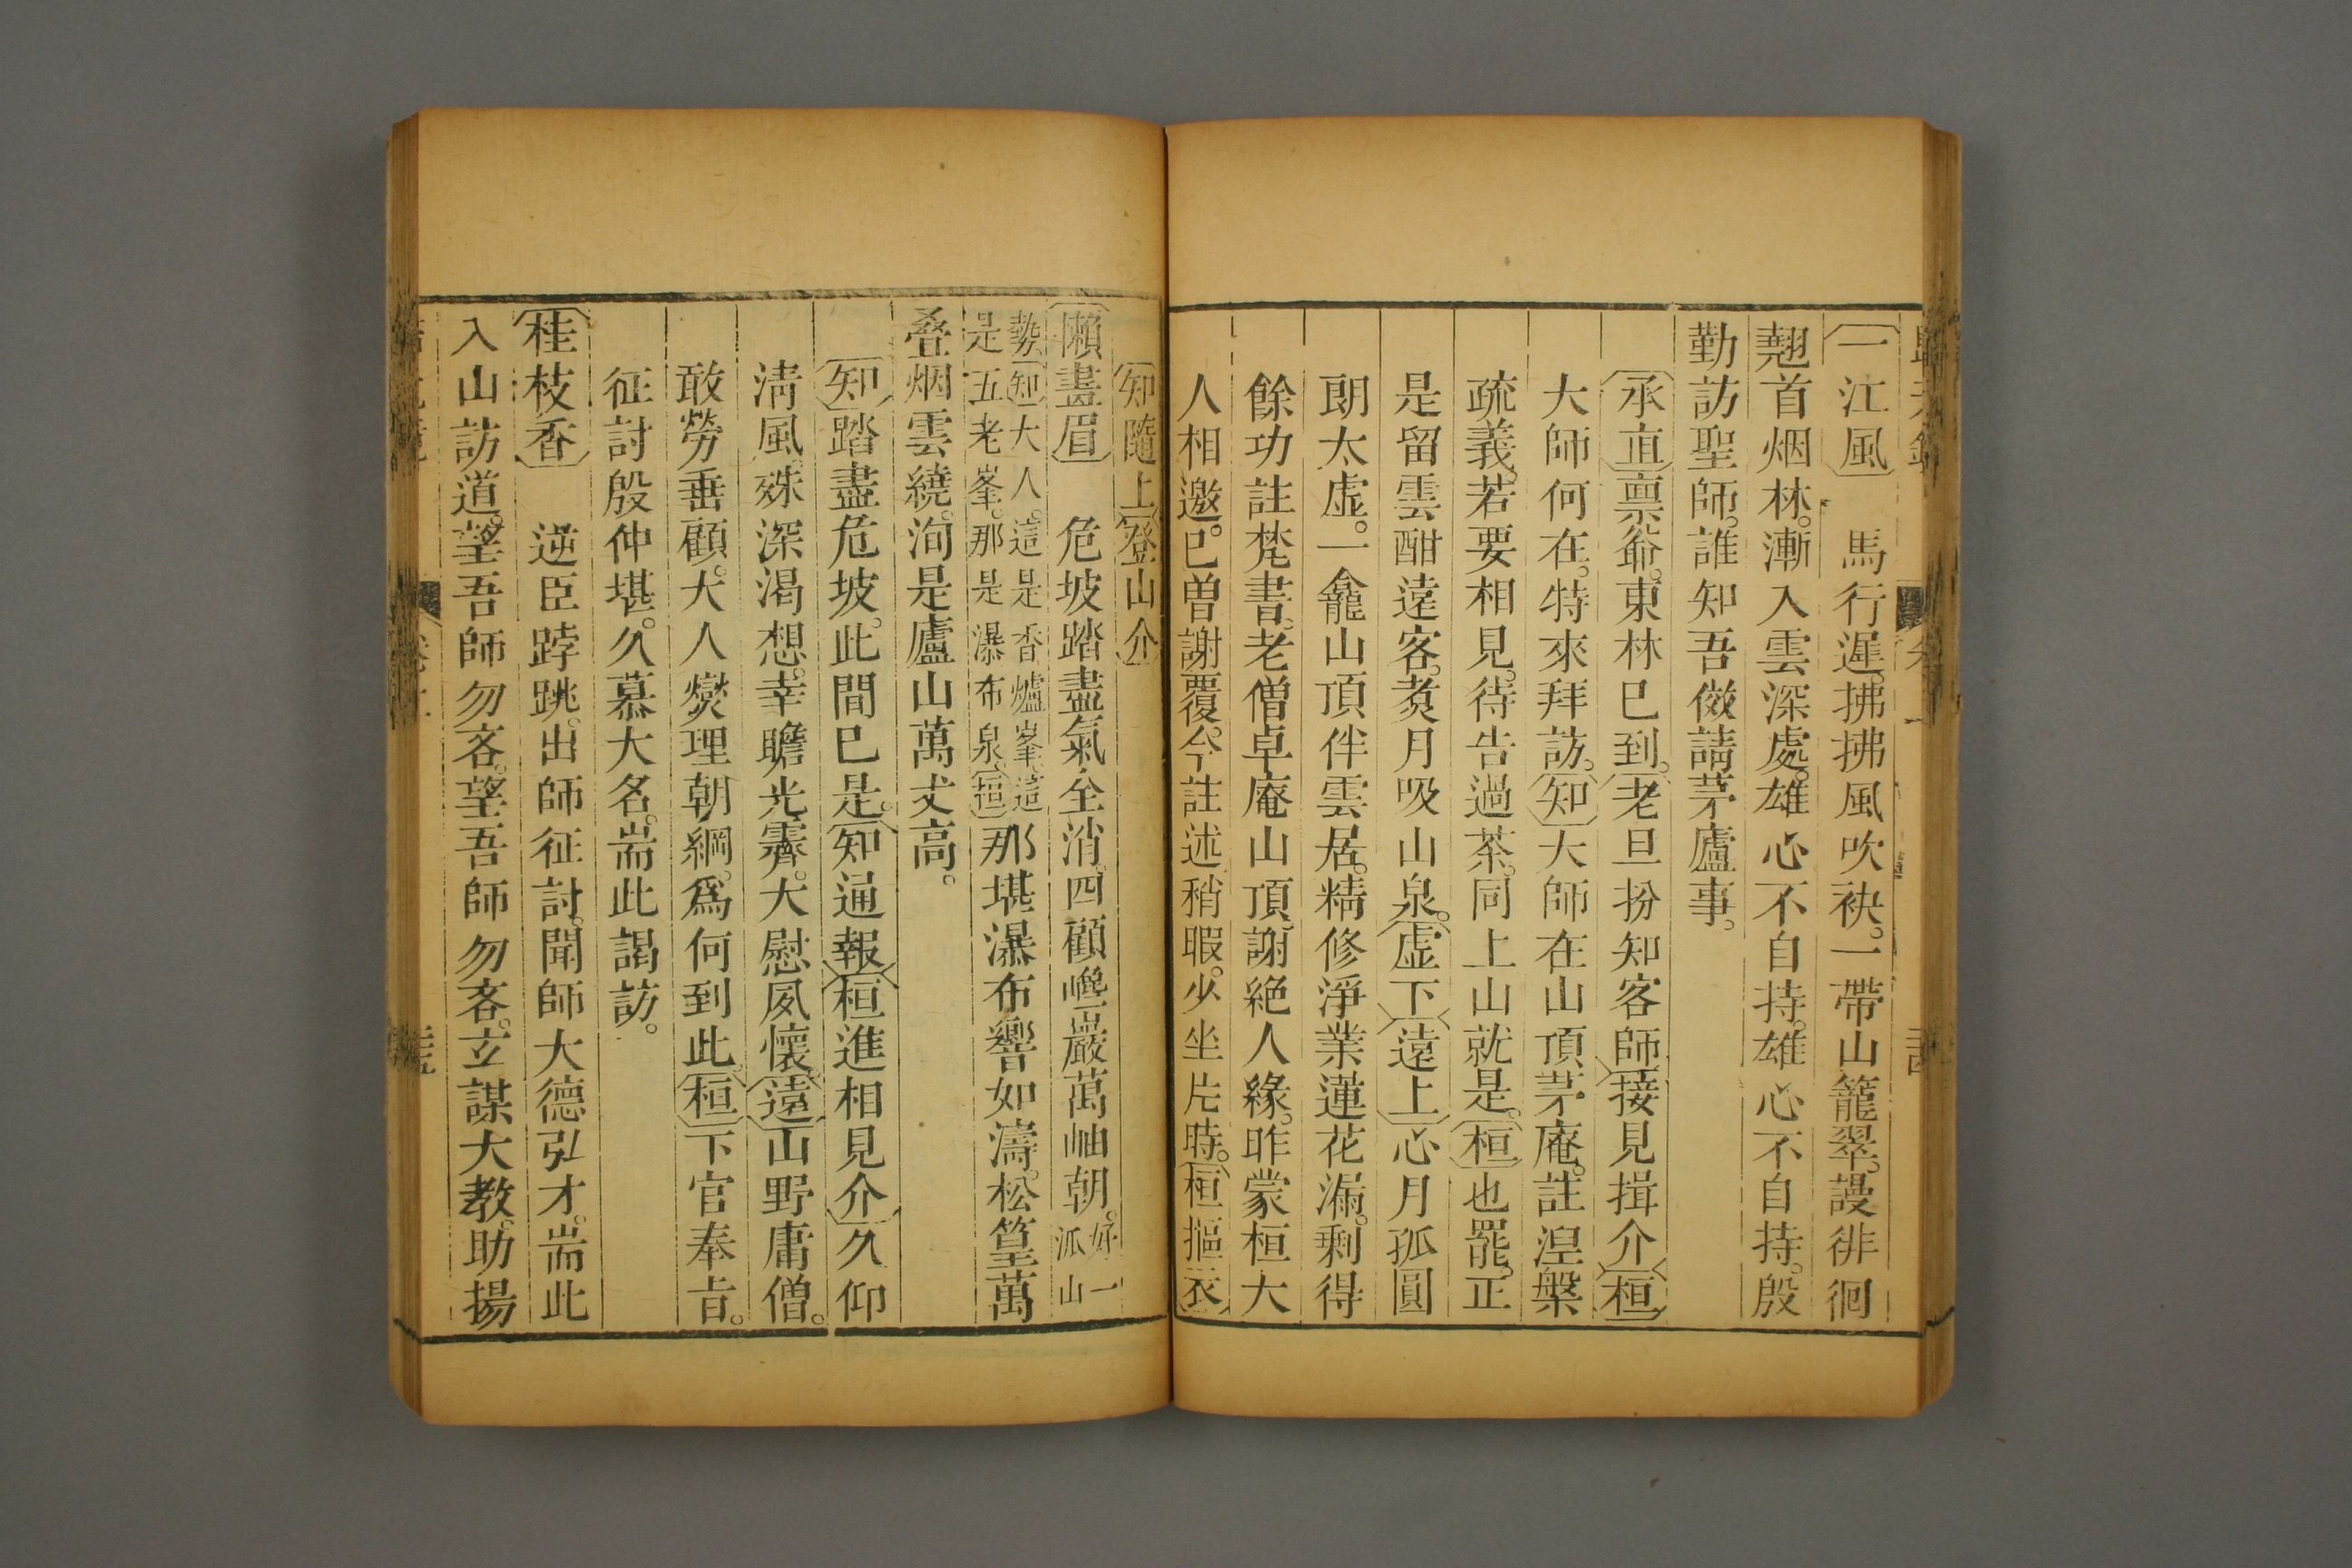 一江風　馬行遲。拂拂風吹袂。一帶山籠翠。謾徘徊
翹首烟林。漸入雲深處。雄心不自持。雄心不自持。殷
勤訪聖師。誰知吾倣請茅廬事。
承直稟爺。東林已到。老旦扮知客師接見揖介桓
大師何在。特來拜訪。知大師在山頂茅庵。註涅槃
疏義。若要相見。待告過茶。同上山就是。桓也罷。正
是留雲酣遠客。煑月吸山泉。虛下遠上心月孤圓
朗太虛。一龕山頂伴雲居。精修淨業蓮花漏。剩得
餘功註梵書。老僧卓庵山頂。謝絕人緣。昨蒙桓大
人相邀。已曾謝覆。今註述稍暇。少坐片時。桓摳衣
知隨上登山介
懶畫眉　危坡踏盡氣全消。四顧巉巖萬岫朝。好一派山
勢知大人。這是香爐峯。這是五老峯。那是瀑布泉。桓那堪瀑布響如濤。松篁萬
叠烟雲繞。洵是廬山萬丈高。
知踏盡危坡。此間已是。知通報桓進相見介久仰
淸風。殊深渴想。幸瞻光霽。大慰夙懷。遠山野庸僧。
敢勞垂顧。大人燮理朝綱。爲何到此。桓下官奉旨。
征討殷仲堪。久慕大名。耑此謁訪。
桂枝香　逆臣跨跳。出師征討。聞師大德弘才。耑此
入山訪道。望吾師勿吝。望吾師勿吝。玄謀大教。助揚